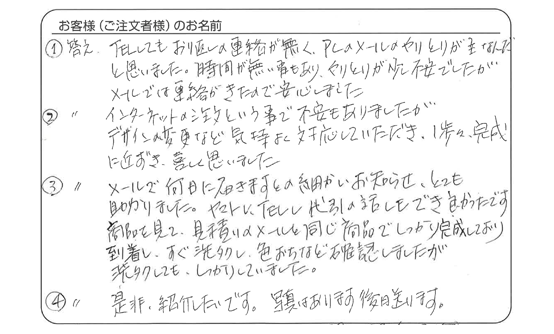 お客様（ご注文者様）のお名前
① 答え、TELしてもおり返しの連絡が無く、PCのメールのやりとりが主なんだ
と思いました。時間が無い事もあり、やりとりが少し不安でしたが
メールでは連絡がきたので安心しました
② 〃 インターネットの注文という事で不安もありましたが
デザインの変更など気持よく対応していただき、1歩々、完成
に近ずき、嬉しく思いました
③ 〃 メールで何日に届きますとの細かいお知らせ、とても
助かりました。ヤマトにTELし代引の話しもでき良かったです
商品を見て、見積りのメールと同じ商品でしっかり完成しており
到着し、すぐ洗タクし、色おちなど確認しましたが
洗タクしても、しっかりしていました。
④ 〃 是非、紹介したいです。写真はあります後日送ります。